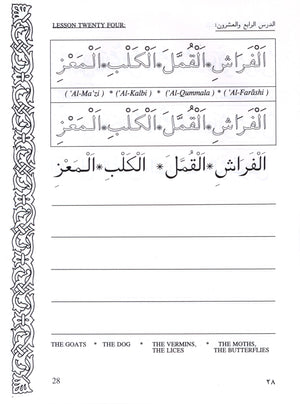 LESSON TWENTY FOUR: الدرس الرابع والعشرون:
اَلْفَرَاشِ * اَلْقُمَّلَ * اَلْكَلْبِ * اَلْمَعْزِ
( 'Al-Ma'zi ) * ('Al-Kalbi ) * ('Al-Qummala ) * ( 'Al-Farāshi )
اَلْفَرَاشِ * اَلْقُمَّلَ * اَلْكَلْبِ * اَلْمَعْزِ
اَلْفَرَاشِ * اَلْقُمَّلَ * اَلْكَلْبِ * اَلْمَعْزِ
THE GOATS * THE DOG * THE VERMINS, * THE MOTHS,
THE LICES THE BUTTERFLIES
28 ٢٨